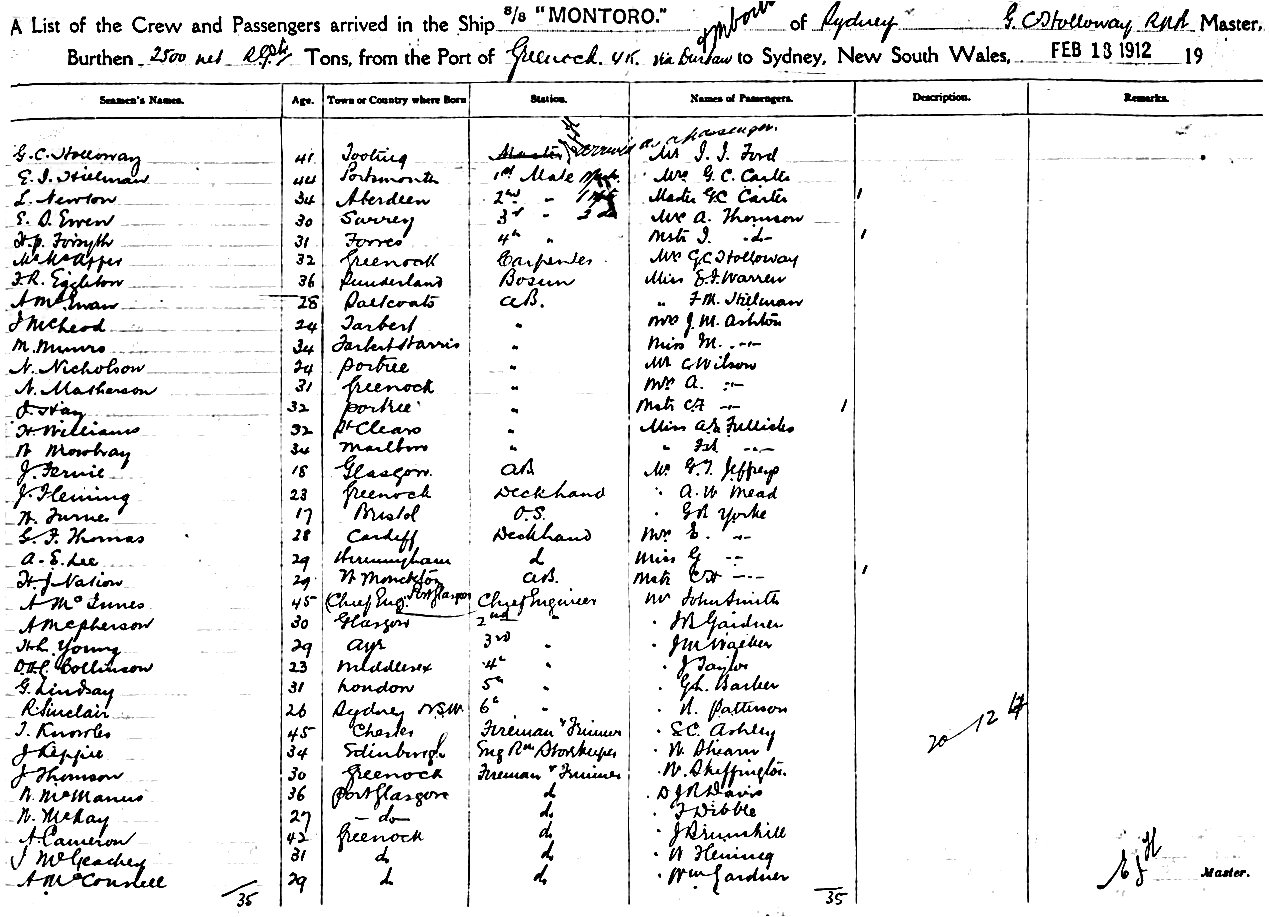 A List of the Crew and Passengers arrived in the Ship S/S "MONTORO." of Sydney G. C. Holloway RNR Master,
Burthen 2500 net Tons, from the Port of Greenock. U.K. via Durban to Sydney, New South Wales, FEB 13 1912 19
Seamen's Names. Age. Town or Country where Born Station. Names of Passengers. Description. Remarks.
a passenger.
G. C. Holloway 41 Tooting Master Mr I. I. Ford
E. J. Hillman 44 Portsmouth 1st Mate Mrs G. C. Carter
L. Newton 34 Aberdeen 2nd " Master G C Carter 1
E. D. Ewen 30 Surrey 3rd " Mrs A. Thomson
H. P. Forsyth 31 Forres 4th " Mstr I. -do- 1
32 Greenock Carpenter Mrs G C Holloway
F. R. Eggleton 36 Sunderland Bosun Miss E I Warren
A McEwan 28 Saltcoats A.B. " F. M. Hillman
J McLeod 24 Tarbert " Mrs J. M. Ashton
M. Munro 34 Tarbert Harris " Miss M. -"-
N. Nicholson 24 Portree " Mr C Wilson
N. Matherson 31 Greenock " Mrs A. -"-
J. Hay 32 Portree " Mstr C F -"- 1
H Williams 32 St Clears " Miss
W Mowbray 34 Marlboro " " -"-
J. Fernie 18 Glasgow. AB Mr G. T. Jeffreys
J. Fleming 23 Greenock Deckhand " A. W Mead
W. Turner 17 Bristol O.S. " G R Yorke
G. F. Thomas 28 Cardiff Deckhand Mrs E. "
A. E. Lee 29 Birmingham do Miss G -"-
H. J. Nation 29 W Monckton A.B. Mstr C H -"- 1
A McInnes 45 (Chief Eng. Port Glasgow Chief Engineer Mr John Smith
A McPherson 30 Glasgow 2nd " " J R Gardner
H. L. Young 29 Ayr 3rd " " J M Walker
D. H. C. Collinson 23 Middlesex 4th " " J Taylor
G. Lindsay 31 London 5th " " G L. Barker
R Sinclair 26 Sydney NSW 6th " " R. Patterson
T. Knowles 45 Chester Fireman & Trimmer " S. C. Ashley
J Keppie 34 Edinburgh Eng Rm Storekeeper " W. Shearn
J Thomson 30 Greenock Fireman & Trimmer " W. Skeffington.
W. McManus 36 Port Glasgow do " D J R Davis
N. McKay 27 -do- do " F Dibble
A. Cameron 42 Greenock do " J Brunskill
J McGeachey 31 do do " W Fleming
A McConnell 29 do do " Wm Gardner
Master.
35 35